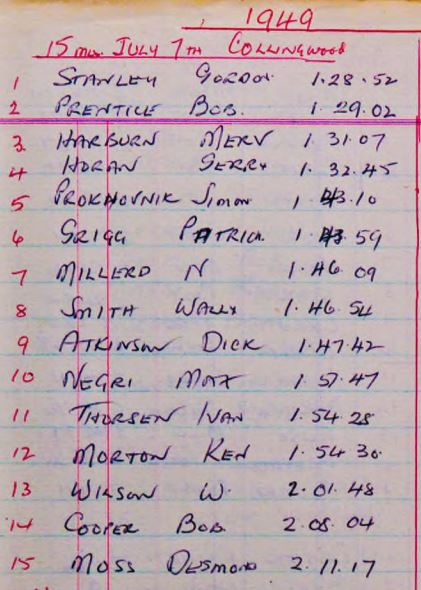 1949
15 mls. JULY 7TH COLLINGWOOD
1 STANLEY GORDON 1.28.52
2 PRENTICE BOB. 1.29.02
3 HARBURN MERV 1.31.07
4 HORAN GERRY 1.32.45
5 PROKHOVNIK Simon 1.43.10
6 GRIGG PATRICK 1.43.59
7 MILLERD N 1.46 09
8 SMITH WALLY 1.46 54
9 ATKINSON DICK 1.47.42
10 NEGRI MAX 1.57.47
11 THORSEN IVAN 1.54 28
12 MORTON KEN 1.54 30.
13 WILSON W. 2.01.48
14 COOPER BOB. 2.08.04
15 MOSS DESMOND 2.11.17